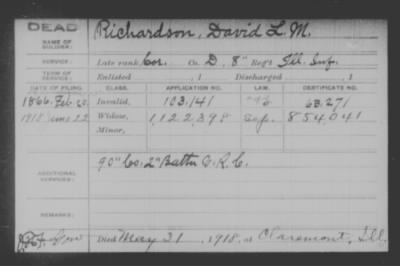 DEAD Richardson, David L. M.
NAME OF SOLDIER:
SERVICE: Late rank Cor. Co. D, 8" Reg't Ill. Inf.
TERM OF SERVICE: Enlisted , 1 Discharged , 1
DATE OF FILING. CLASS. APPLICATION NO. LAW. CERTIFICATE NO.
1866. Feb 20. Invalid, 103,141 63.271
1918 June 22 Widow, 1,122,398 854,041
Minor,
ADDITIONAL SERVICES: 90" Co. 2" Batt'n V. R. C.
REMARKS:
Died May 31, 1918, at Claremont, Ill.